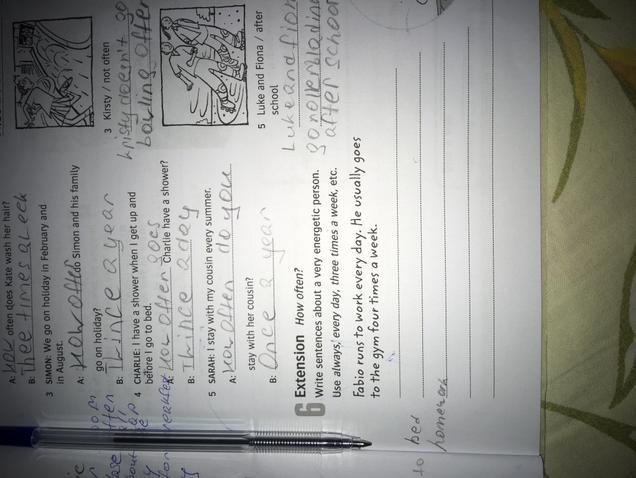 A: How often does Kate wash her hair?
B: Thee times a leek
3 SIMON: We go on holiday in February and
in August.
A: How often do Simon and his family
go on holiday?
B: Thince a year
4 CHARLIE: I have a shower when I get up and
before I go to bed.
A: How often goes Charlie have a shower?
B: Thince a day
5 SARAH: I stay with my cousin every summer.
A: How often do you
stay with her cousin?
B: Once a year
3 Kirsty / not often
kristy doesn't go
bowling often
5 Luke and Fiona / after
school
Luke and fion
go rollerblading
after school
6 Extension How often?
Write sentences about a very energetic person.
Use always, every day, three times a week, etc.
Fabio runs to work every day. He usually goes
to the gym four times a week.
to bed
homework